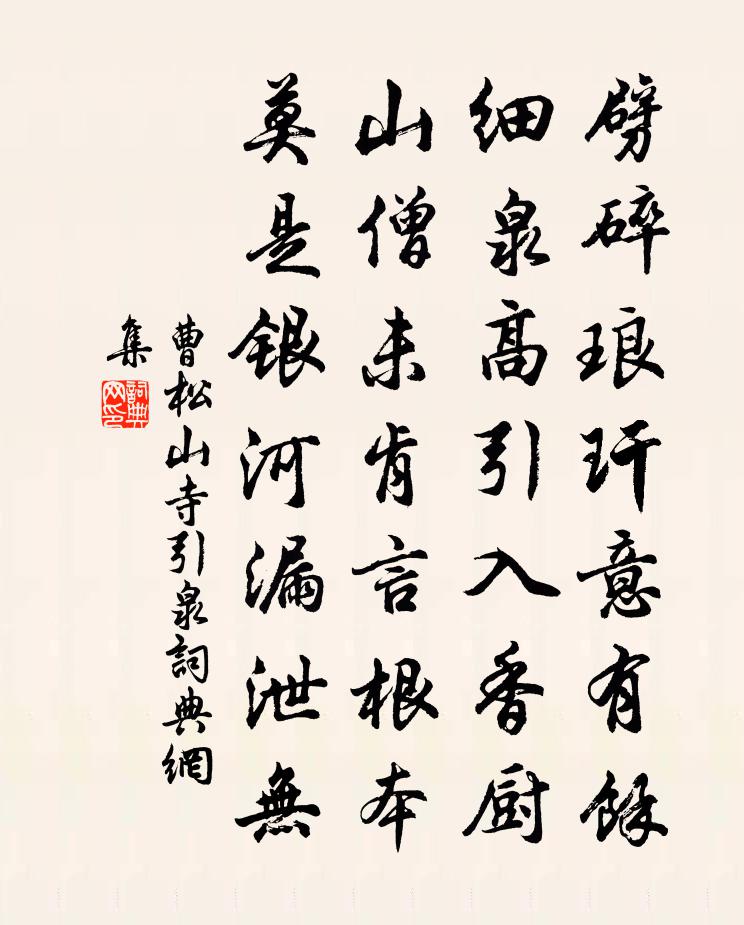 劈碎琅玕意有餘
細泉高引入香厨
山僧未肯言根本
莫是銀河漏泄無
曹松山寺引泉詞典網
集
詞典
网印